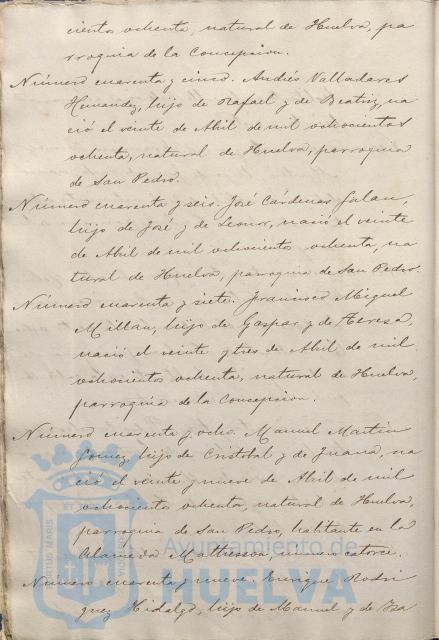 cientos ochenta, natural de Huelva, pa
rroquia de la Concepcion.
Número cuarenta y cinco. Andrés Valladares
Hernandez, hijo de Rafael y de Beatriz, na
ció el veinte de Abril de mil ochocientos
ochenta, natural de Huelva, parroquia
de San Pedro.
Número cuarenta y seis. José Cárdenas Galan,
hijo de José y de Leonor, nació el veinte
de Abril de mil ochocientos ochenta, na
tural de Huelva, parroquia de San Pedro.
Número cuarenta y siete. Francisco Miguel
Millan, hijo de Gaspar y de Teresa,
nació el veinte y tres de Abril de mil
ochocientos ochenta, natural de Huelva,
parroquia de la Concepcion.
Número cuarenta y ocho. Manuel Martin
Gomez, hijo de Cristobal y de Juana, na
ció el veinte y nueve de Abril de mil
ochocientos ochenta, natural de Huelva,
parroquia de San Pedro, habitante en la
Alameda número catorce.
Número cuarenta y nueve. Enrique Rodri
guez Hidalgo, hijo de Manuel y de Isa
Ayuntamiento de
HUELVA